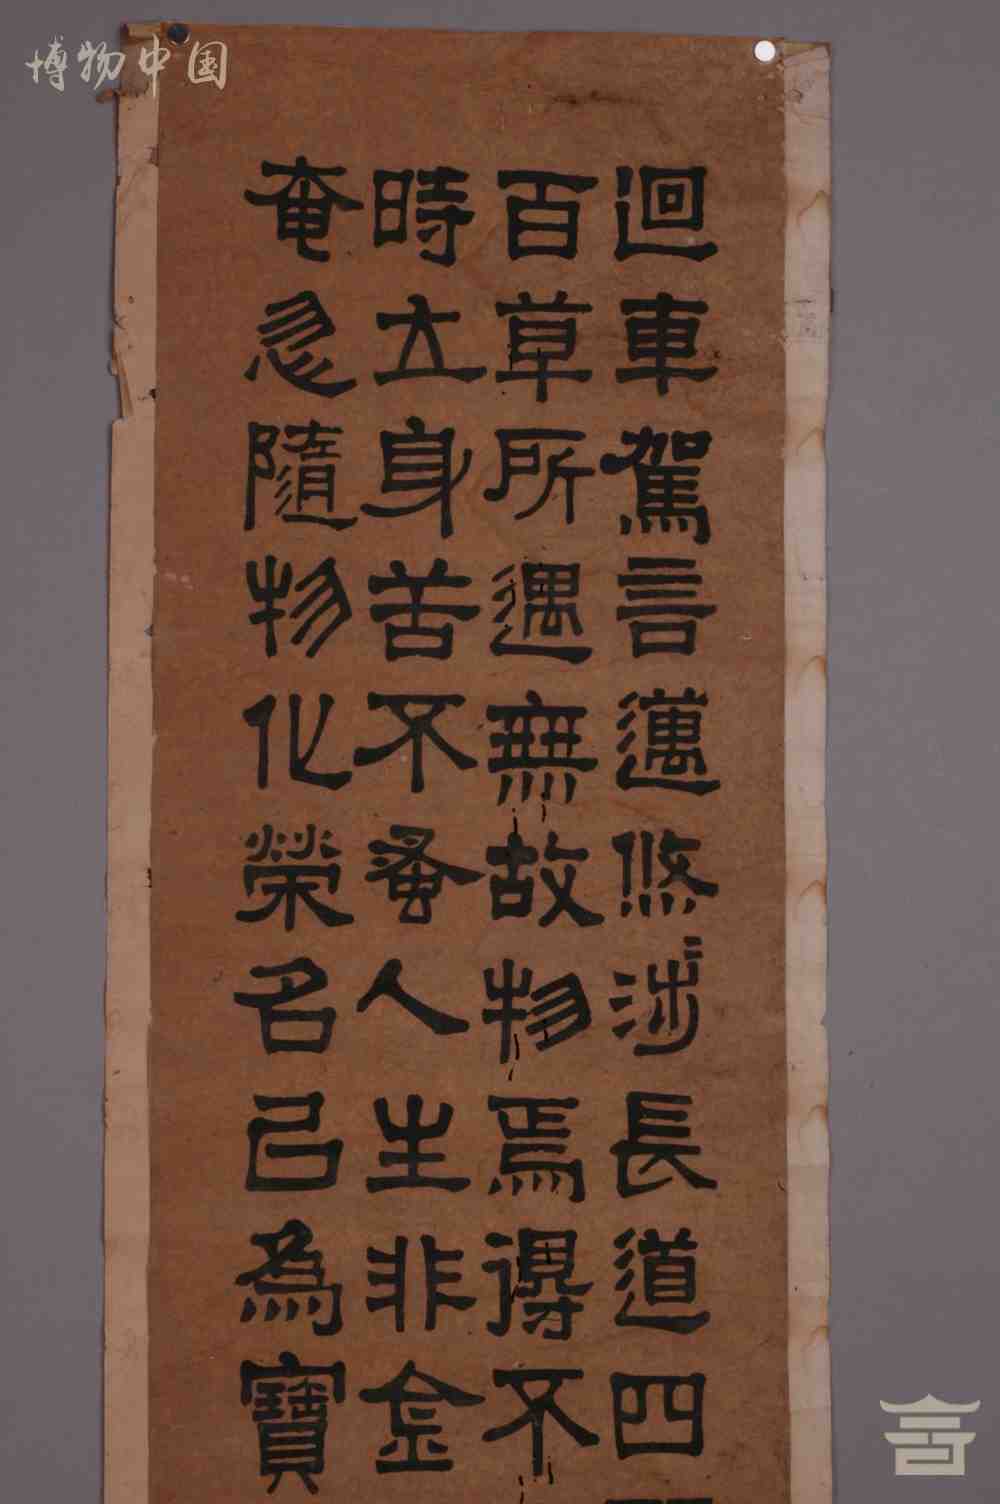 博物中国
迴車駕言邁悠涉長道四
百草所遇無故物焉得不
時立身苦不蚤人生非金
奄忽隨物化榮名已為寶